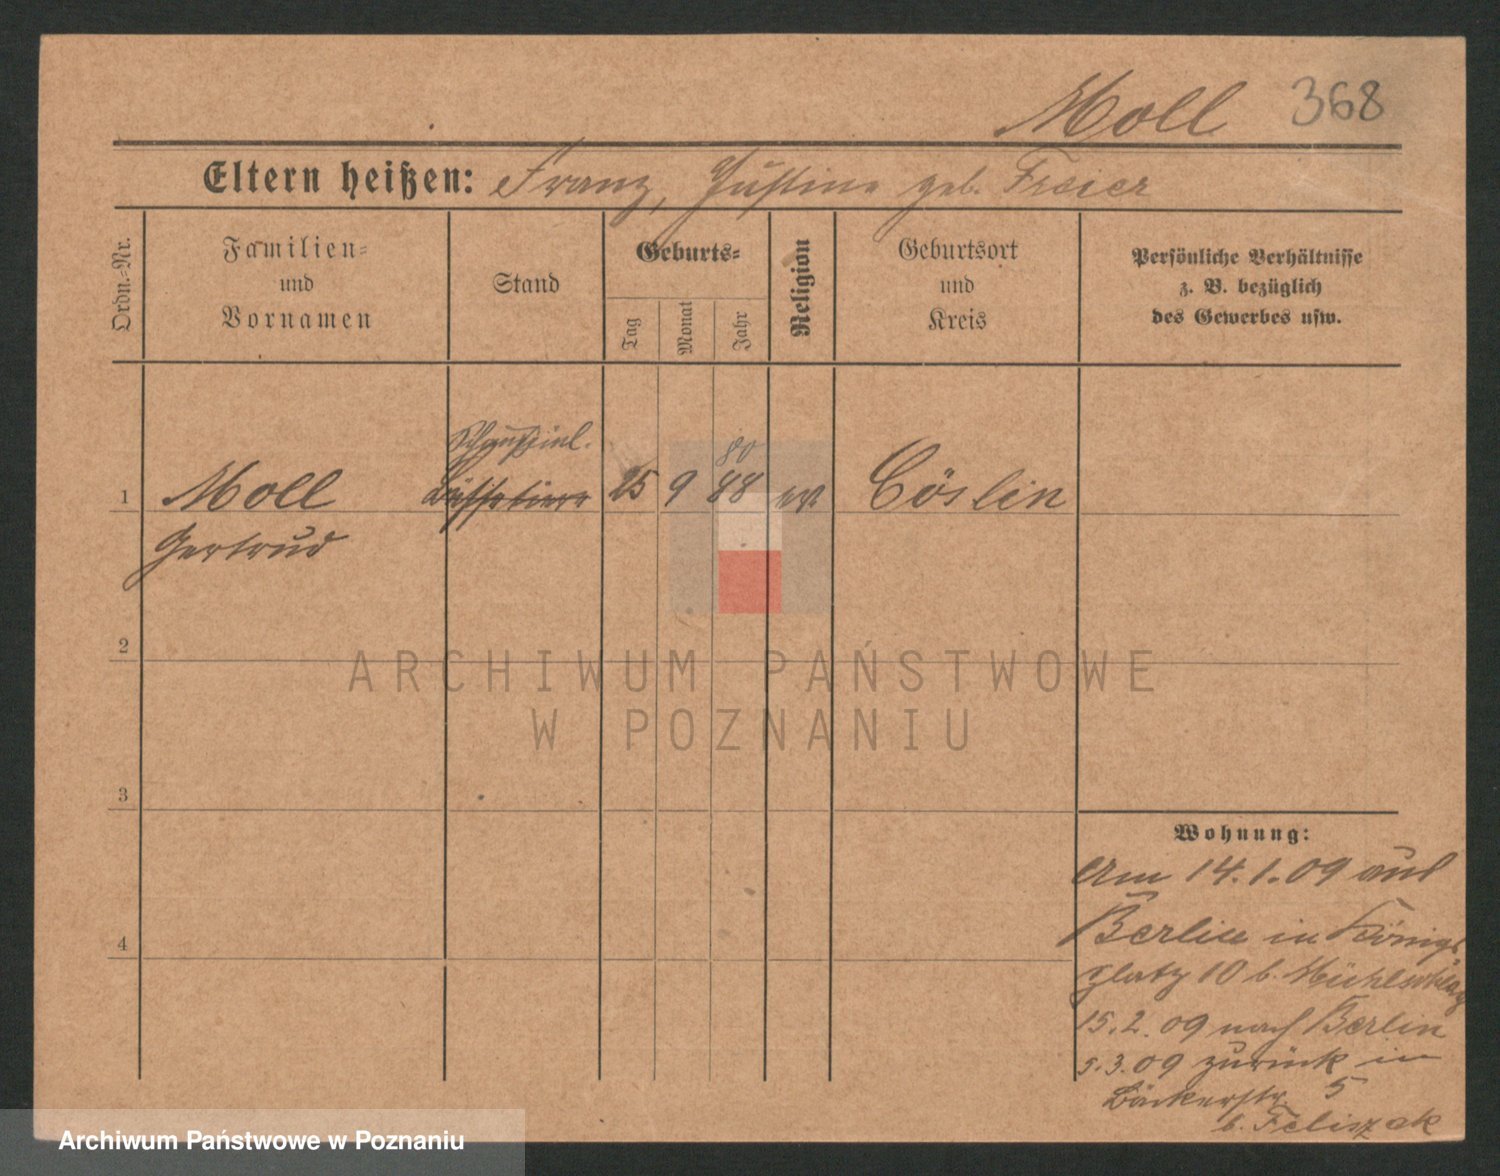 Moll 368
Eltern heißen: Franz, Justine geb. Freier
Ordn.-Nr.
Familien-
und
Vornamen
Stand
Geburts-
Tag
Monat
Jahr
Religion
Geburtsort
und
Kreis
Persönliche Verhältnisse
z. B. bezüglich
des Gewerbes usw.
Schauspiel.
80
1 Moll 25 9 88 ev. Cöslin
Gertrud
2
3
4
Wohnung:
Am 14.1.09 aus
Berlin in Königs
platz 10 b. Mühlschlag
15.2.09 nach Berlin
5.3.09 zurück in
Bäckerstr. 5
b. Feliszak
ARCHIWUM PAŃSTWOWE
W POZNANIU
Archiwum Państwowe w Poznaniu